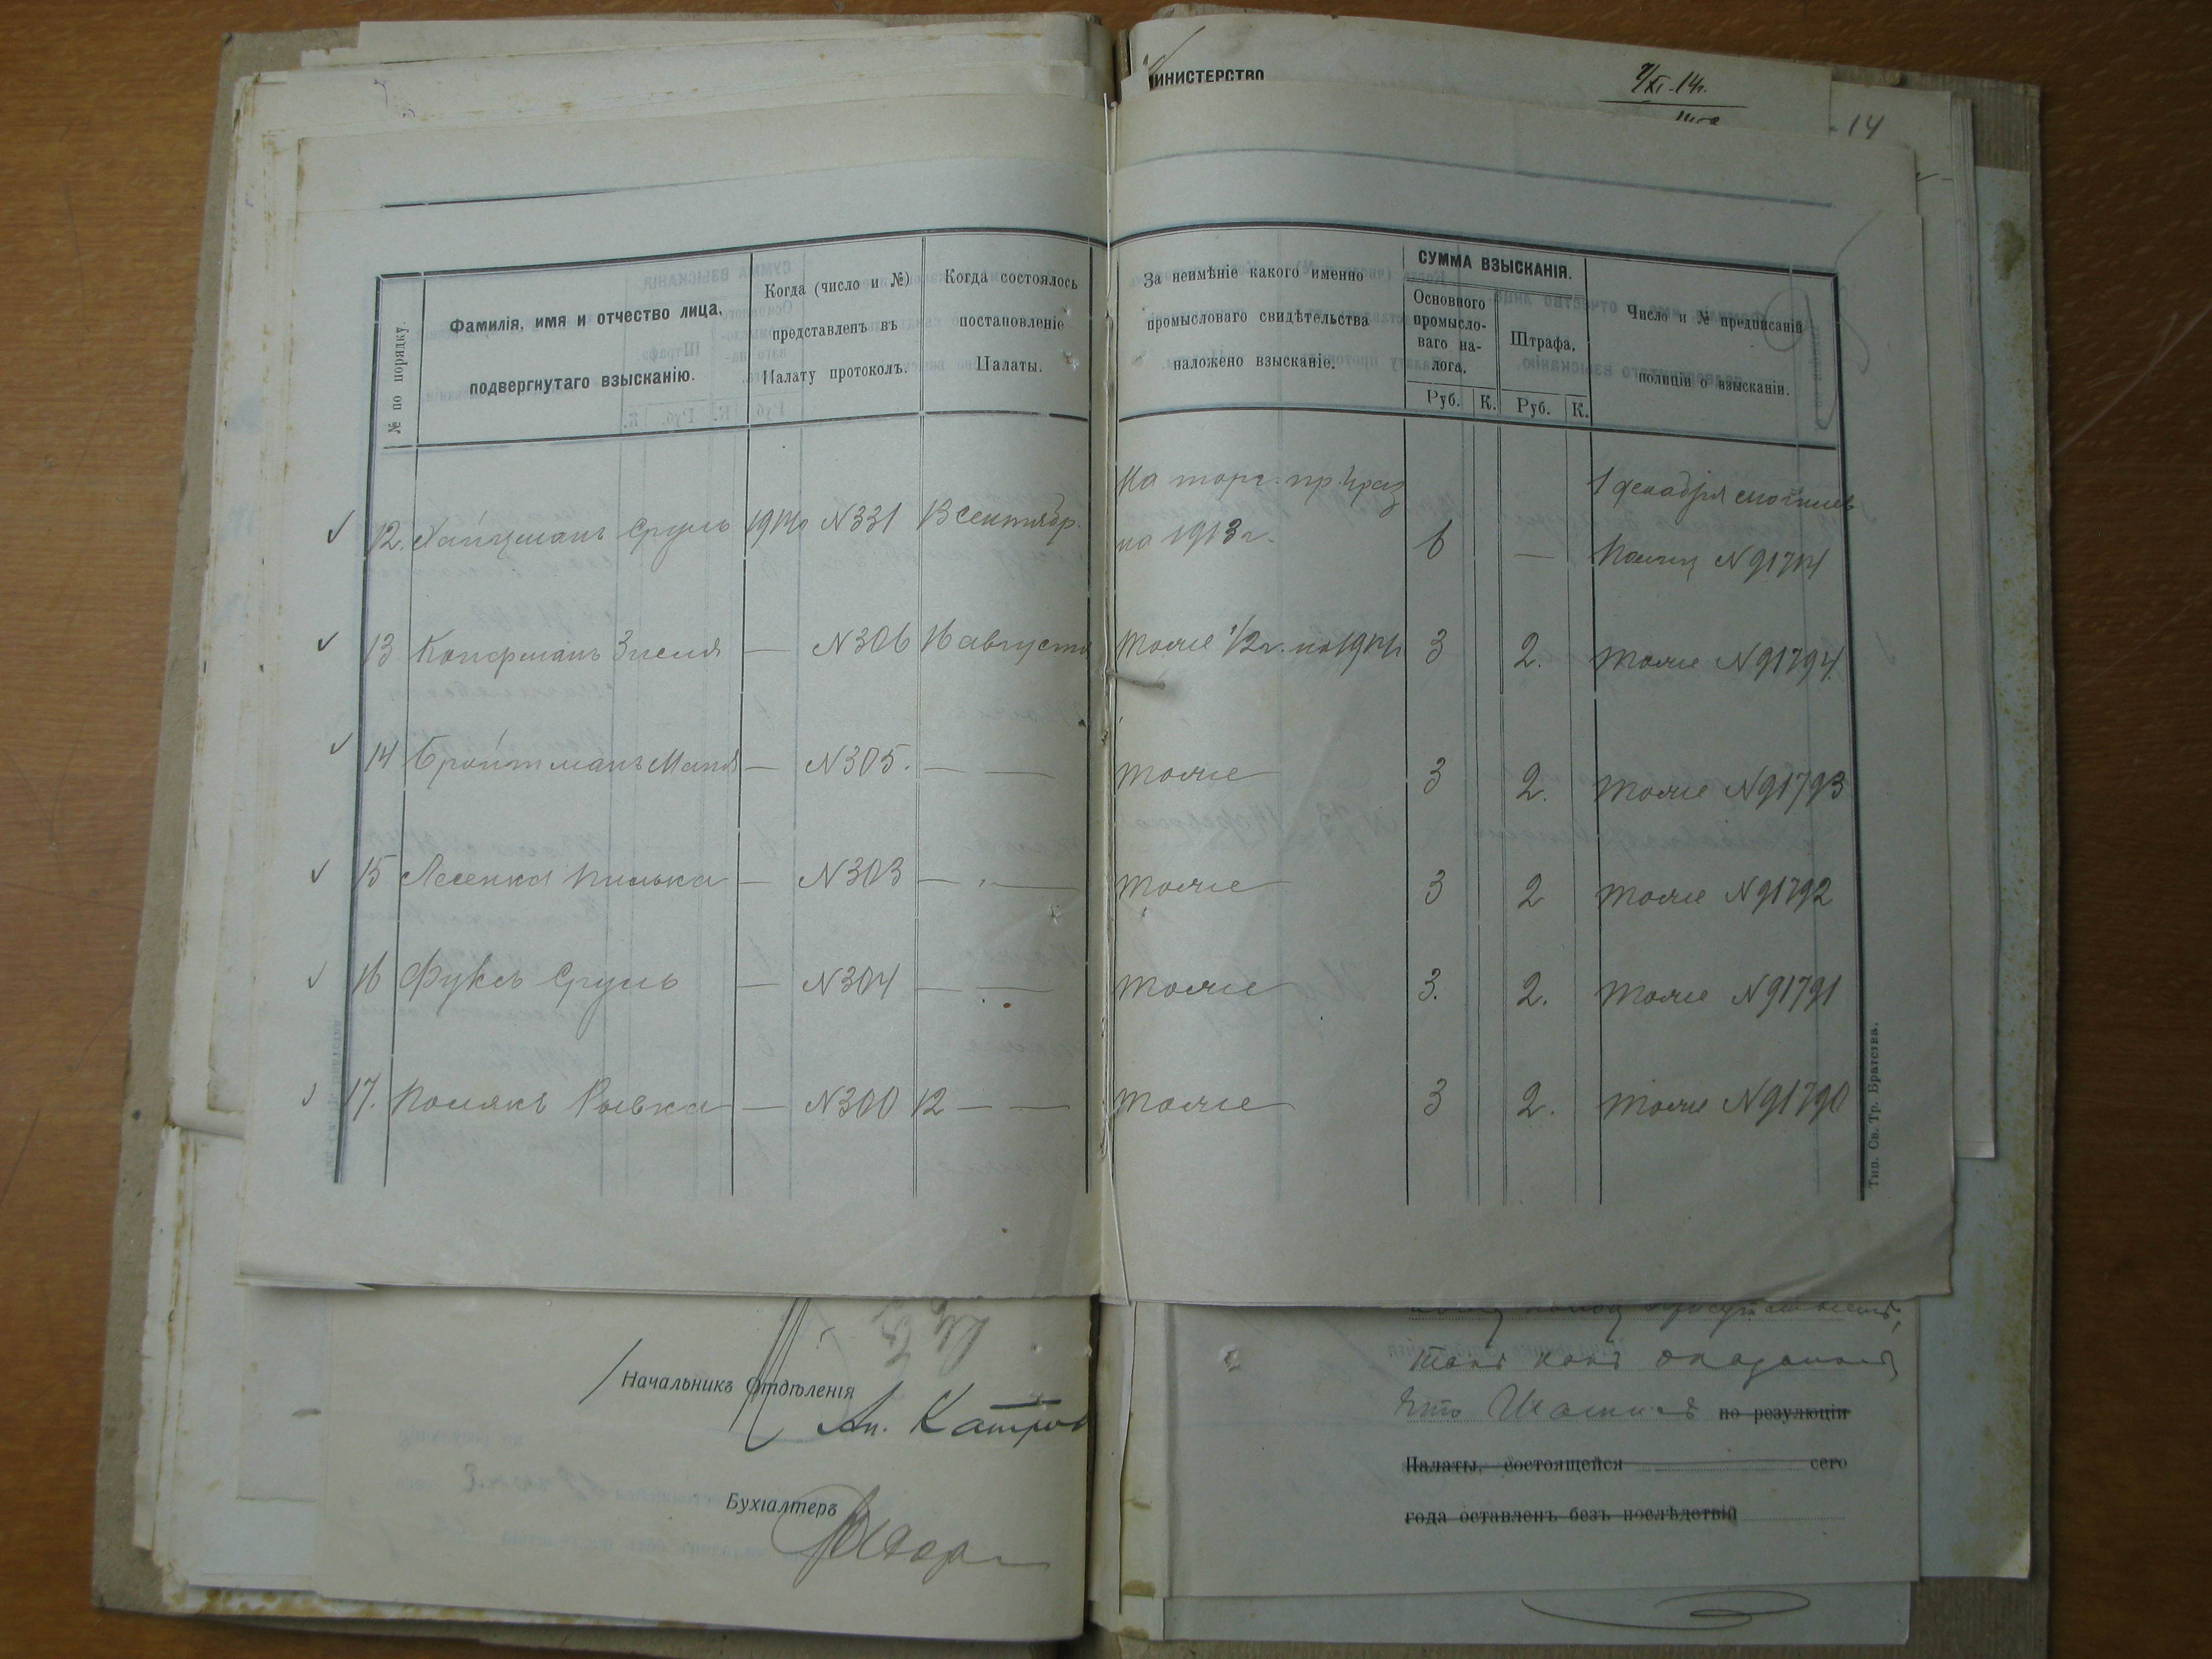 МИНИСТЕРСТВО
-14г.
- 14
№ по порядку.
Фамилія, имя и отчество лица,
подвергнутаго взысканію.
Когда (число и №)
представленъ въ
Палату протоколъ.
Когда состоялось
постановленіе
Палаты.
За неимѣніе какого именно
промысловаго свидѣтельства
наложено взысканіе.
СУММА ВЗЫСКАНІЯ.
Основного
промысло-
ваго на-
лога.
Штрафа.
Руб. К. Руб. К.
Число и № предписаній
полиціи о взысканіи.
12. Хайцманъ Сруль 1914г. N331 13 сентябр. На торг. пр. 4 раз. 1 декабря
на 1913 г. 6 — N91714
13 Кауфманъ Зиселя — N306 16 августа тоже 1/2 г. на 1914 г. 3 2. тоже N91794.
14 Бройтманъ Маня — N305. — — тоже 3 2. тоже N91793
15 — N303 — — тоже 3 2 тоже N91792
16 Фуксъ Сруль — N304 — — тоже 3. 2. тоже N91791
17. Полякъ Рывка — N300 12 — — тоже 3 2. тоже N91790
Тип. Св. Тр. Братства.
Начальникъ Отдѣленія
Бухгалтеръ
такъ какъ
что по резулюціи
Палаты, состоящейся сего
года оставленъ безъ послѣдствій